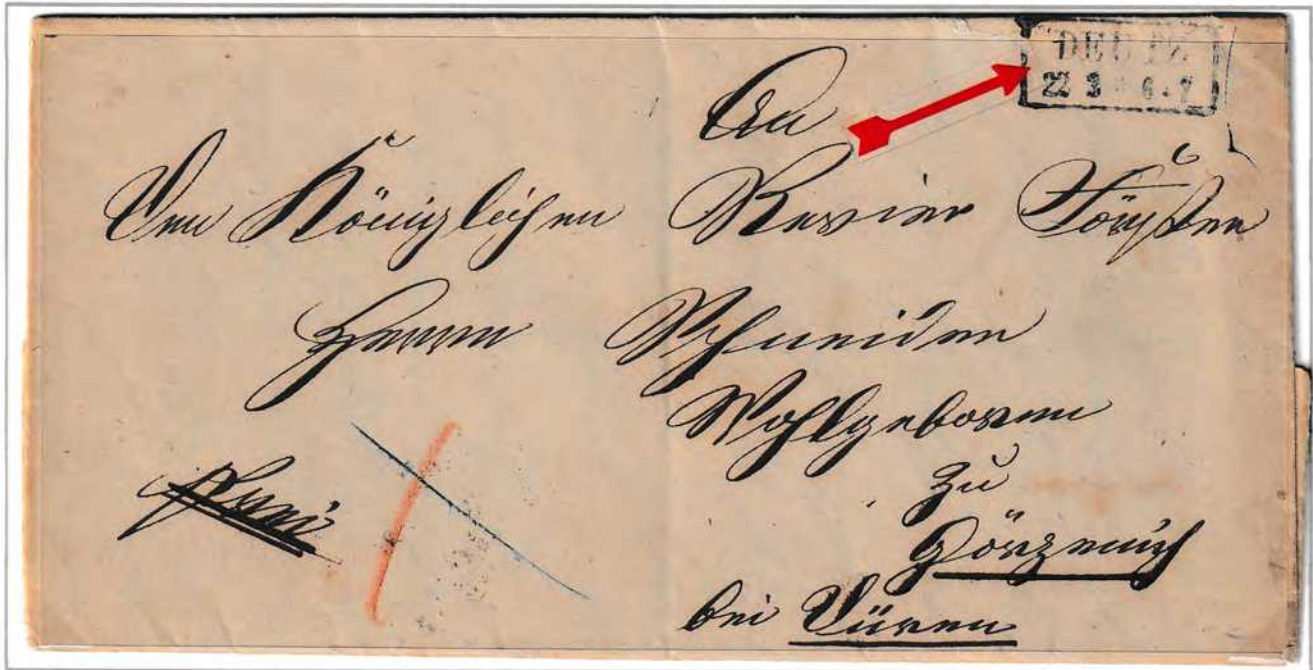 DEUTZ
22 3 * 6-7
An
Den Königlichen Revier Förster
Herrn Schneider
Wohlgeboren
zu
frei Görzenich
bei Düren